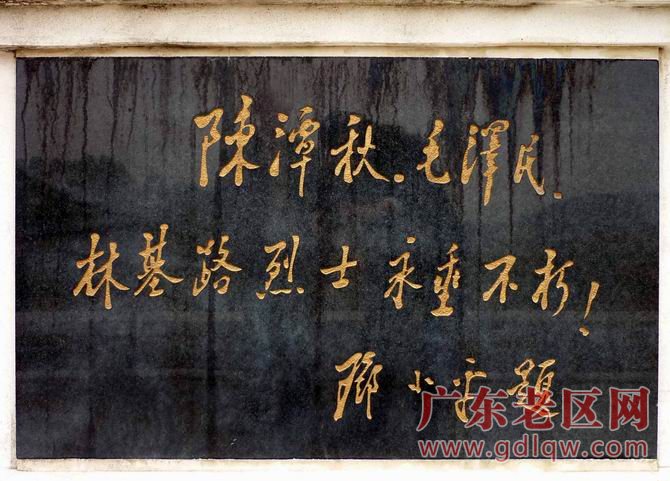 陳潭秋.毛澤民.
林基路烈士永垂不朽!
鄧小平題
广东老区网
www.gdlqw.com